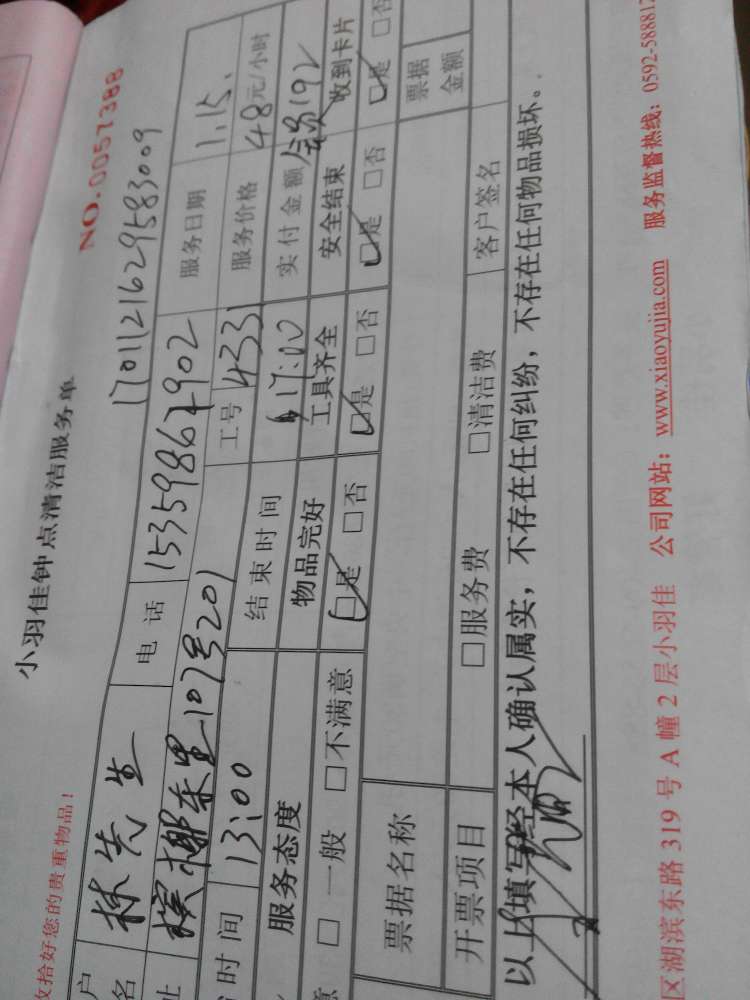 收拾好您的贵重物品！
小羽佳钟点清洁服务单
NO.0057388
1701121629583009
户名 林先生 电话 15359867902 服务日期 1.15.
址 槟榔东里107号201 工号 4331 服务价格 48元/小时
时间 13:00 结束时间 17:00 实付金额 会员192
服务态度 物品完好 工具齐全 安全结束 收到卡片
意 □ 一般 □不满意 ☑是 □否 ☑是 □否 ☑是 □否 ☑是 □否
票据名称 票据金额
开票项目 □服务费 □清洁费 客户签名
以上填写经本人确认属实，不存在任何纠纷，不存在任何物品损坏。
区湖滨东路 319 号 A 幢 2 层小羽佳 公司网站：www.xiaoyujia.com 服务监督热线：0592-588812